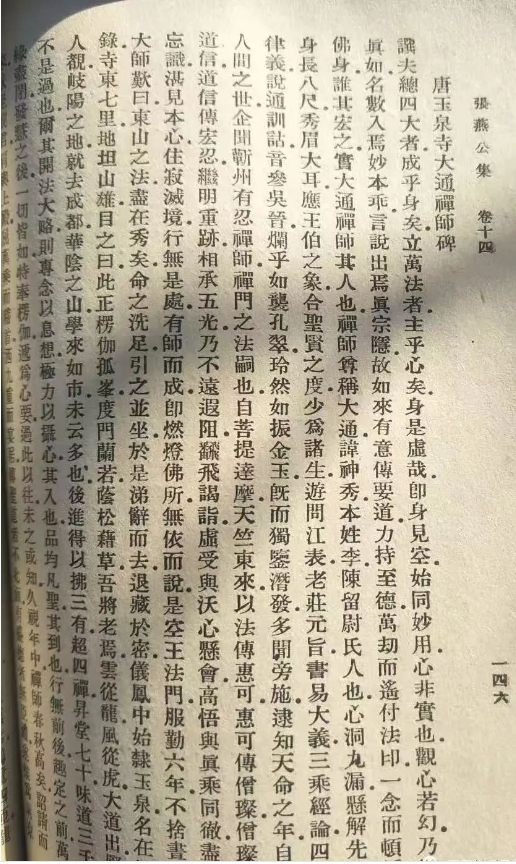 張燕公集 卷十四
一四六
唐玉泉寺大通禪師碑
譔夫總四大者成乎身矣立萬法者主乎心矣身是虛哉卽身見空始同妙用心非實也觀心若幻乃
眞如名數入焉妙本乖言說出焉眞宗隱故如來有意傳要道力持至德萬劫而遙付法印一念而頓
佛身誰其宏之實大通禪師其人也禪師尊稱大通諱神秀本姓李陳留尉氏人也心洞九漏懸解先
身長八尺秀眉大耳應王伯之象合聖賢之度少爲諸生遊問江表老莊元旨書易大義三乘經論四
律義說通訓詁音參吳晉爛乎如襲孔翠玲然如振金玉旣而獨鑒潛發多聞旁施逮知天命之年自
人間之世企聞蘄州有忍禪師禪門之法嗣也自菩提達摩天竺東來以法傳惠可惠可傳僧璨僧璨
道信道信傳宏忍繼明重跡相承五光乃不遠遐阻飜飛謁詣虛受與沃心懸會高悟與眞乘同徹盡
忘識湛見本心住寂滅境行無是處有師而成卽燃燈佛所無依而說是空王法門服勤六年不捨晝
大師歎曰東山之法盡在秀矣命之洗足引之並坐於是涕辭而去退藏於密儀鳳中始隸玉泉名在
錄寺東七里地坦山雄目之曰此正楞伽孤峯度門蘭若蔭松藉草吾將老焉雲從龍風從虎大道出
人覩岐陽之地就去成都華陰之山學來如市未云多也後進得以拂三有超四禪昇堂七十味道三千
不是過也爾其開法大略則專念以息想極力以攝心其入也品均凡聖其到也行無前後趣定之前萬
緣盡閉發慧之後一切皆如特奉楞伽遞爲心要過此以往未之或知久視年中禪師春秋高矣詔請而